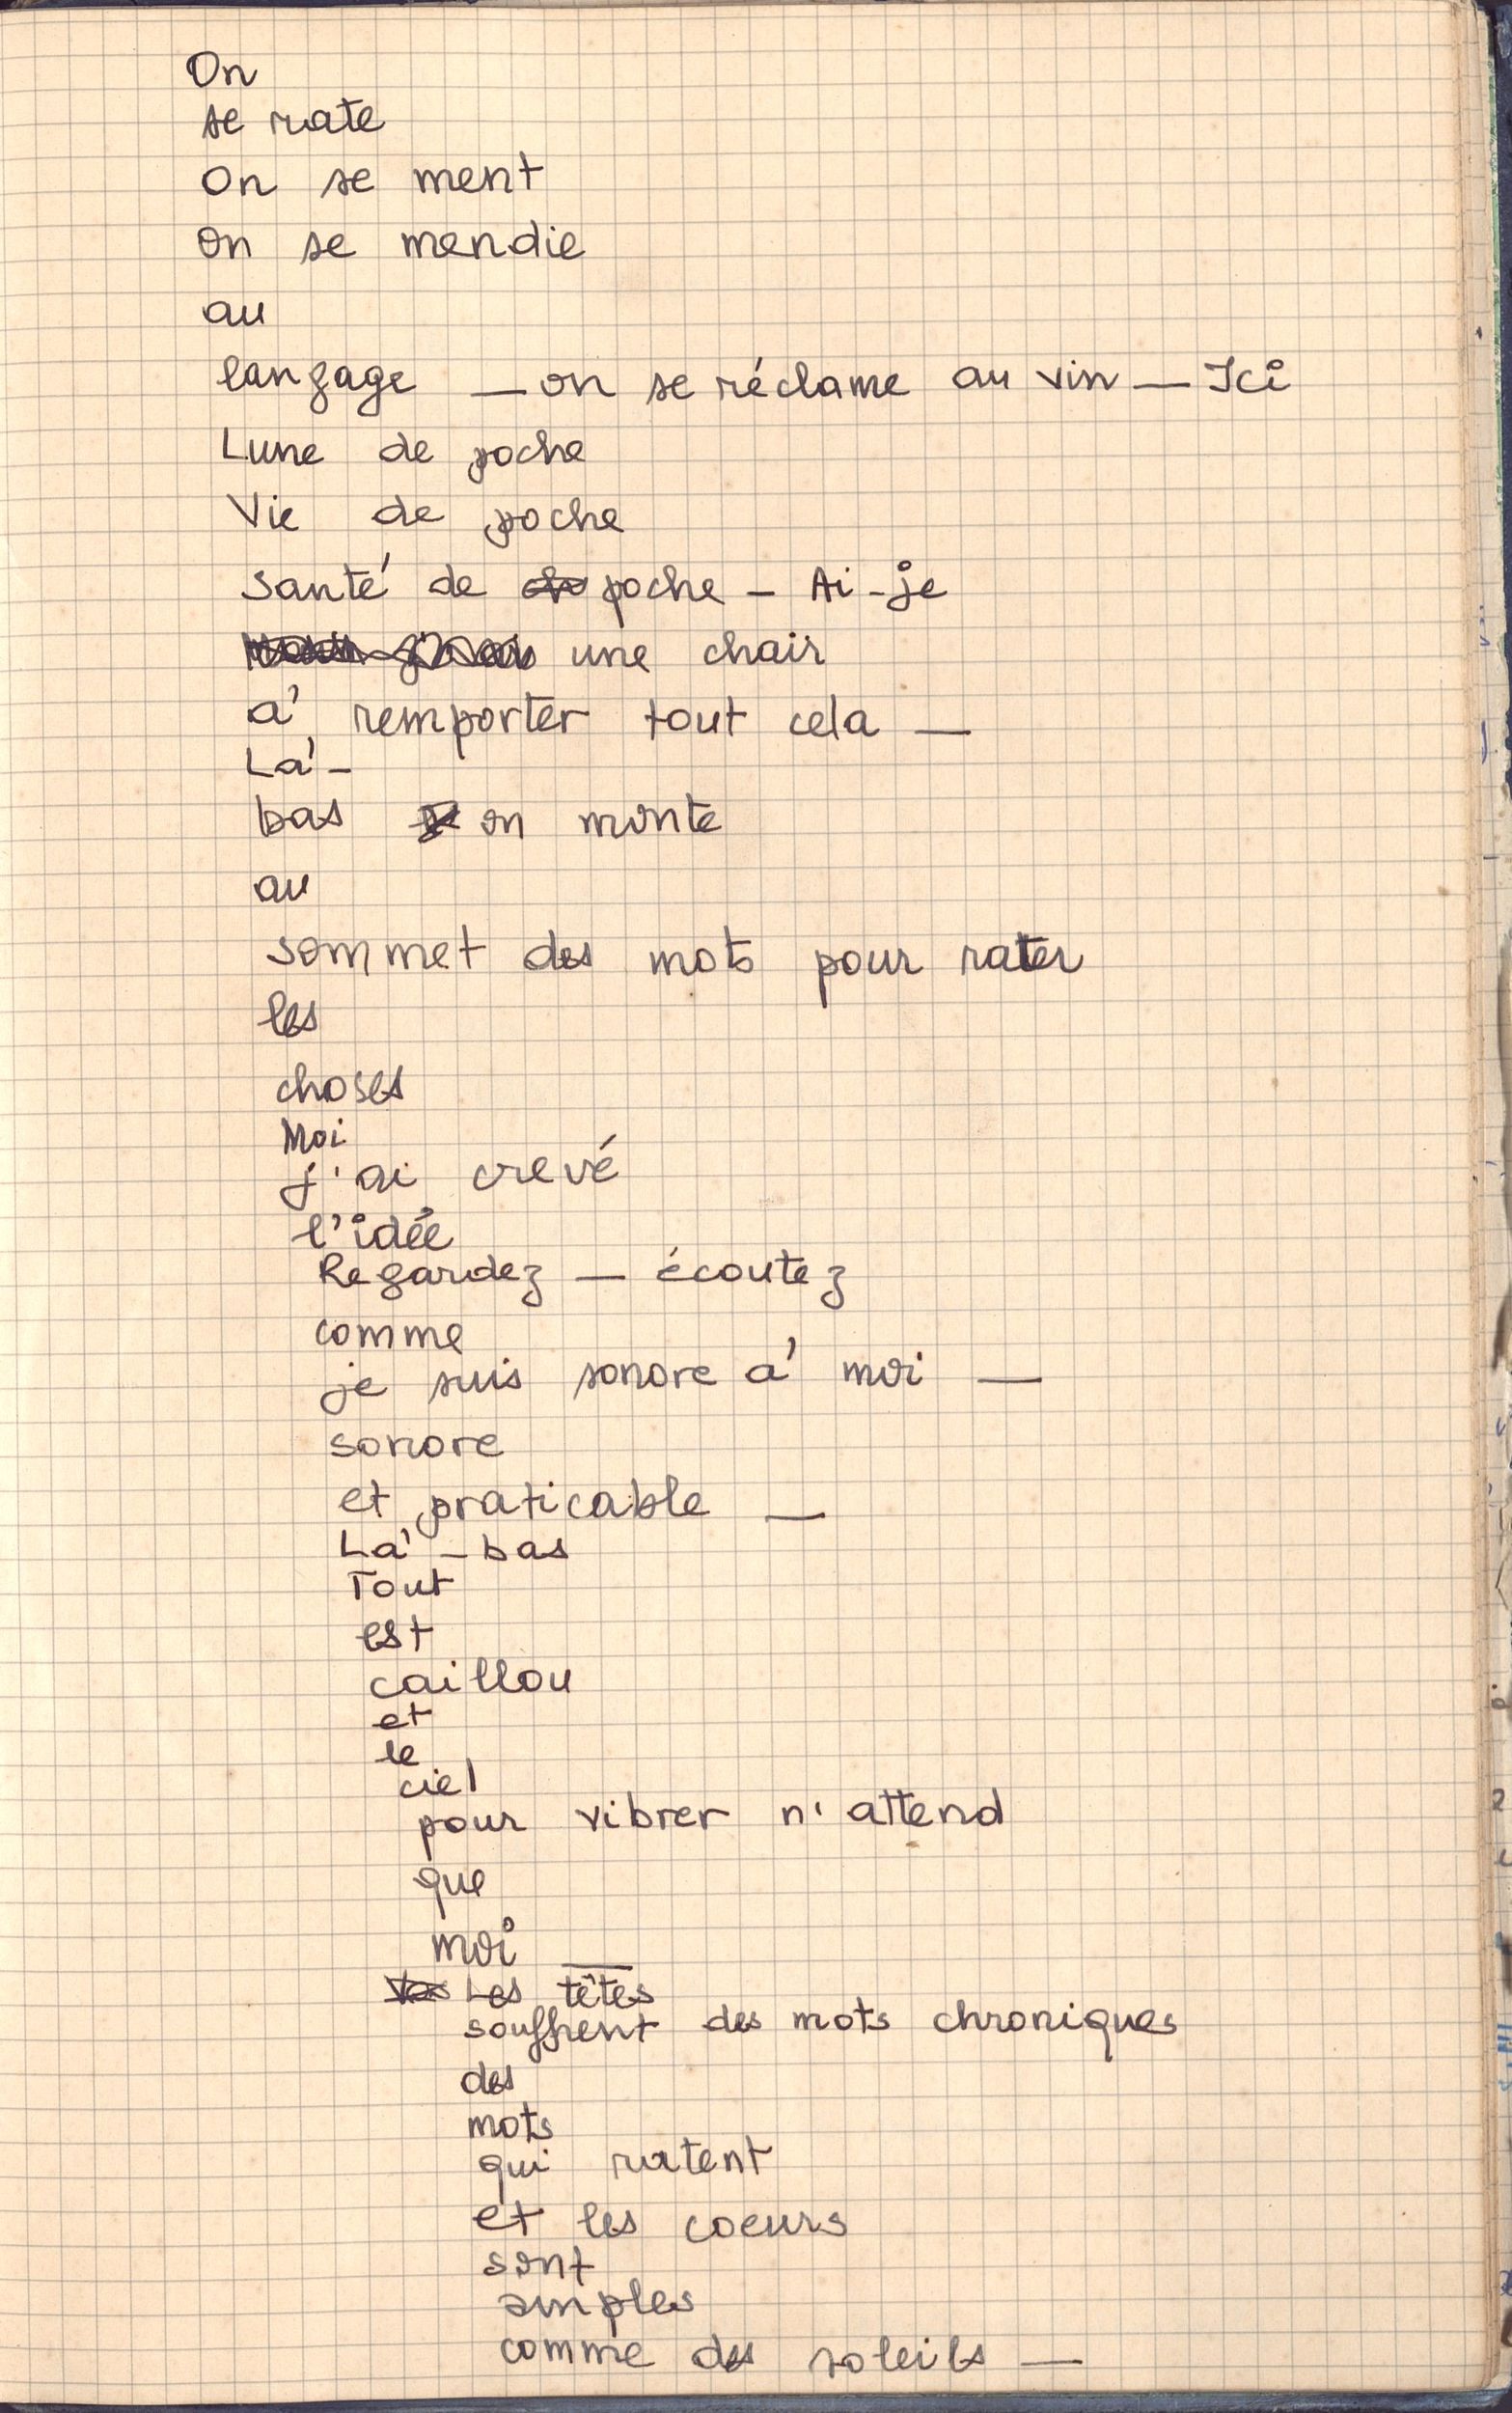 On
se rate
On se ment
on se mendie
au
langage — on se réclame au vin — Ici
Lune de poche
Vie de poche
santé de poche — Ai-je
une chair
à remporter tout cela —
Là-
bas on monte
au
sommet des mots pour rater
les
choses
Moi
j'ai crevé
l'idée
Regardez — écoutez
comme
je suis sonore à moi —
sonore
et praticable —
Là-bas
Tout
est
caillou
et
le
ciel
pour vibrer n'attend
que
moi —
Les têtes
souffrent des mots chroniques
des
mots
qui ratent
et les coeurs
sont
amples
comme des soleils —